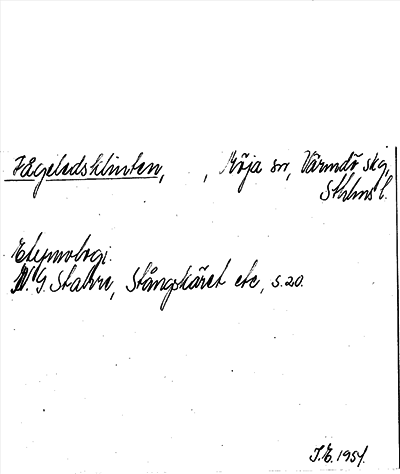 Fågeledsklinten, , Möja sn, Värmdö skg,
Sthlms l.
Etymologi.
N. G. Stahre, Stångskäret etc, s. 20.
J.E. 1954.